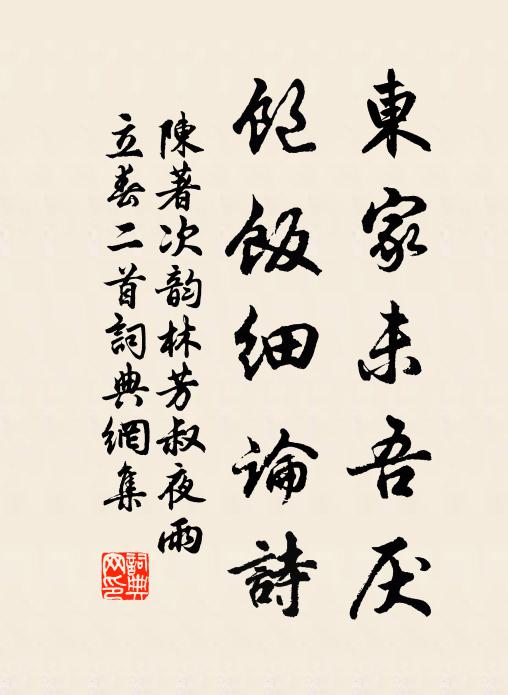 東家未吾厌
飽飯细論詩
陳著次韵林芳叔夜雨
立春二首詞典網集
詞典
网印